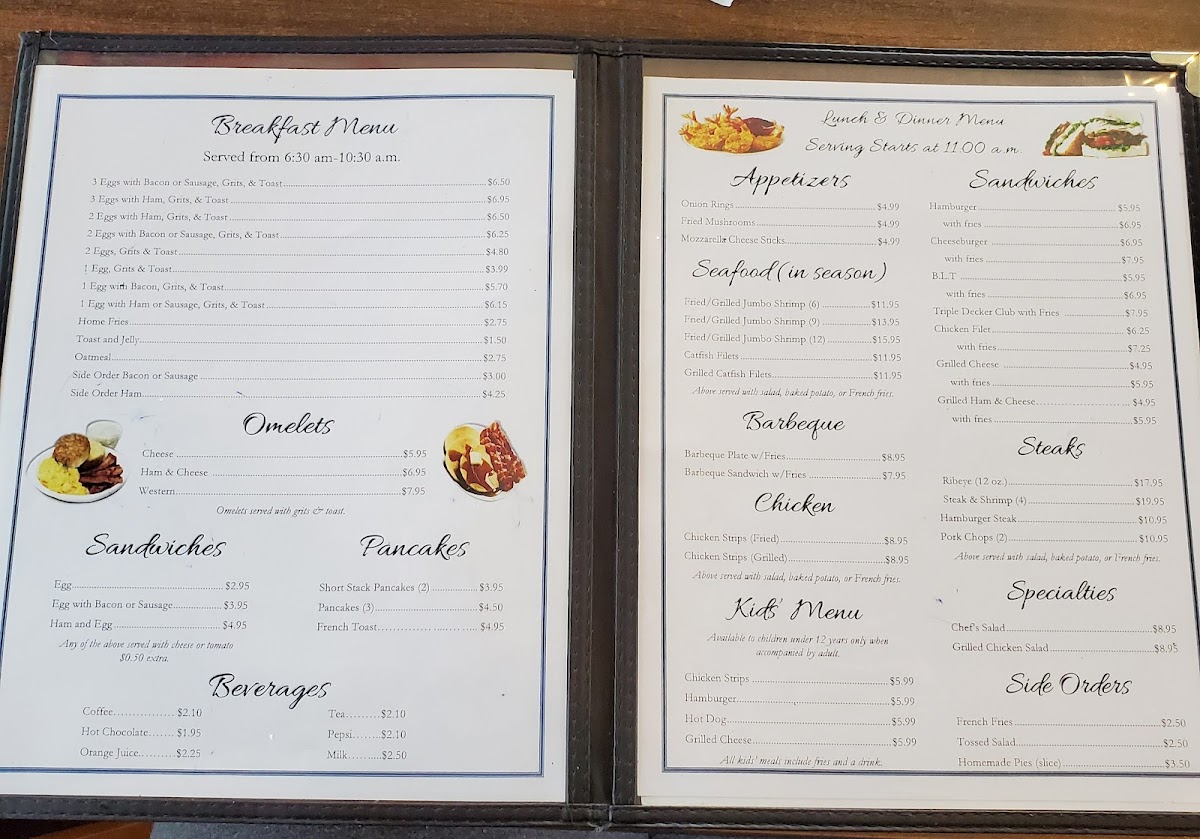 Breakfast Menu
Served from 6:30 am-10:30 a.m.
3 Eggs with Bacon or Sausage, Grits, & Toast........$6.50
3 Eggs with Ham, Grits, & Toast........$6.95
2 Eggs with Ham, Grits, & Toast........$6.50
2 Eggs with Bacon or Sausage, Grits, & Toast........$6.25
2 Eggs, Grits & Toast........$4.80
1 Egg, Grits & Toast........$3.99
1 Egg with Bacon, Grits, & Toast........$5.70
1 Egg with Ham or Sausage, Grits, & Toast........$6.15
Home Fries........$2.75
Toast and Jelly........$1.50
Oatmeal........$2.75
Side Order Bacon or Sausage........$3.00
Side Order Ham........$4.25
Omelets
Cheese........$5.95
Ham & Cheese........$6.95
Western........$7.95
Omelets served with grits & toast.
Sandwiches
Egg........$2.95
Egg with Bacon or Sausage........$3.95
Ham and Egg........$4.95
Any of the above served with cheese or tomato
$0.50 extra.
Pancakes
Short Stack Pancakes (2)........$3.95
Pancakes (3)........$4.50
French Toast........$4.95
Beverages
Coffee........$2.10
Hot Chocolate........$1.95
Orange Juice........$2.25
Tea........$2.10
Pepsi........$2.10
Milk........$2.50
Lunch & Dinner Menu
Serving Starts at 11:00 a.m.
Appetizers
Onion Rings........$4.99
Fried Mushrooms........$4.99
Mozzarella Cheese Sticks........$4.99
Seafood (in season)
Fried/Grilled Jumbo Shrimp (6)........$11.95
Fried/Grilled Jumbo Shrimp (9)........$13.95
Fried/Grilled Jumbo Shrimp (12)........$15.95
Catfish Filets........$11.95
Grilled Catfish Filets........$11.95
Above served with salad, baked potato, or French fries.
Barbeque
Barbeque Plate w/Fries........$8.95
Barbeque Sandwich w/Fries........$7.95
Chicken
Chicken Strips (Fried)........$8.95
Chicken Strips (Grilled)........$8.95
Above served with salad, baked potato, or French fries.
Kids' Menu
Available to children under 12 years only when
accompanied by adult.
Chicken Strips........$5.99
Hamburger........$5.99
Hot Dog........$5.99
Grilled Cheese........$5.99
All kids' meals include fries and a drink.
Sandwiches
Hamburger........$5.95
with fries........$6.95
Cheeseburger........$6.95
with fries........$7.95
B.L.T........$5.95
with fries........$6.95
Triple Decker Club with Fries........$7.95
Chicken Filet........$6.25
with fries........$7.25
Grilled Cheese........$4.95
with fries........$5.95
Grilled Ham & Cheese........$4.95
with fries........$5.95
Steaks
Ribeye (12 oz.)........$17.95
Steak & Shrimp (4)........$19.95
Hamburger Steak........$10.95
Pork Chops (2)........$10.95
Above served with salad, baked potato, or French fries.
Specialties
Chef's Salad........$8.95
Grilled Chicken Salad........$8.95
Side Orders
French Fries........$2.50
Tossed Salad........$2.50
Homemade Pies (slice)........$3.50